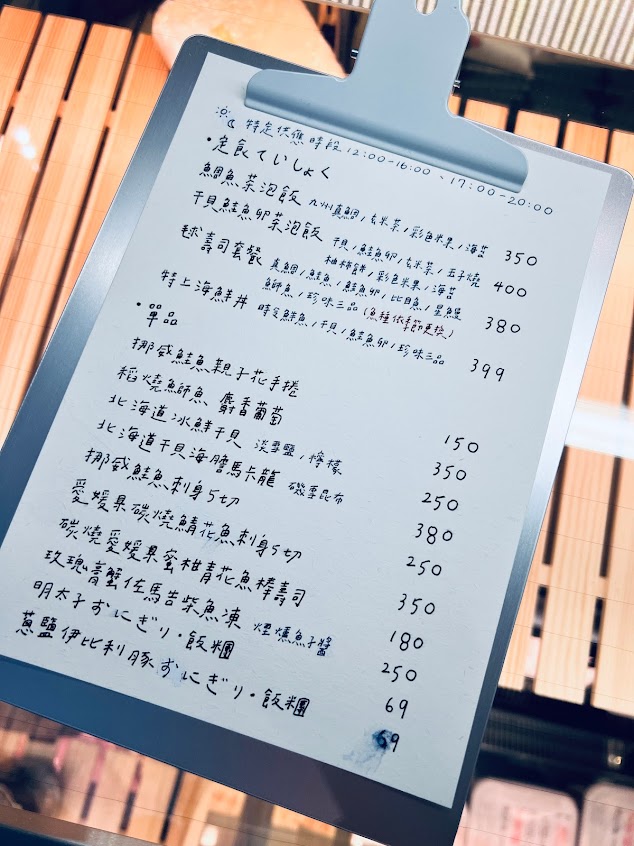 特定供應時段 12:00-16:00、17:00-20:00
・定食ていしょく
鯛魚菜泡飯 九州真鯛/玄米茶/彩色米果/海苔 350
干貝鮭魚卵茶泡飯 干貝/鮭魚卵/玄米茶/玉子燒
柚柿餅/彩色米果/海苔 400
毬壽司套餐 真鯛/鮭魚/鮭魚卵/比目魚/星鰻
鰤魚/珍味三品(魚種依季節更換) 380
特上海鮮丼 時令鮮魚/干貝/鮭魚卵/珍味三品 399
・單品
挪威鮭魚親子花手捲 150
稻燒鰤魚 麝香葡萄 350
北海道冰鮮干貝 淡雪鹽/檸檬 250
北海道干貝海膽馬卡龍 磯雪昆布 380
挪威鮭魚刺身5切 250
愛媛県碳燒鯖花魚刺身5切 350
碳燒愛媛県蜜柑青花魚棒壽司 180
玫瑰膏蟹佐馬告柴魚凍 煙燻魚子醬 250
明太子おにぎり・飯糰 69
蔥鹽伊比利豚おにぎり・飯糰 69